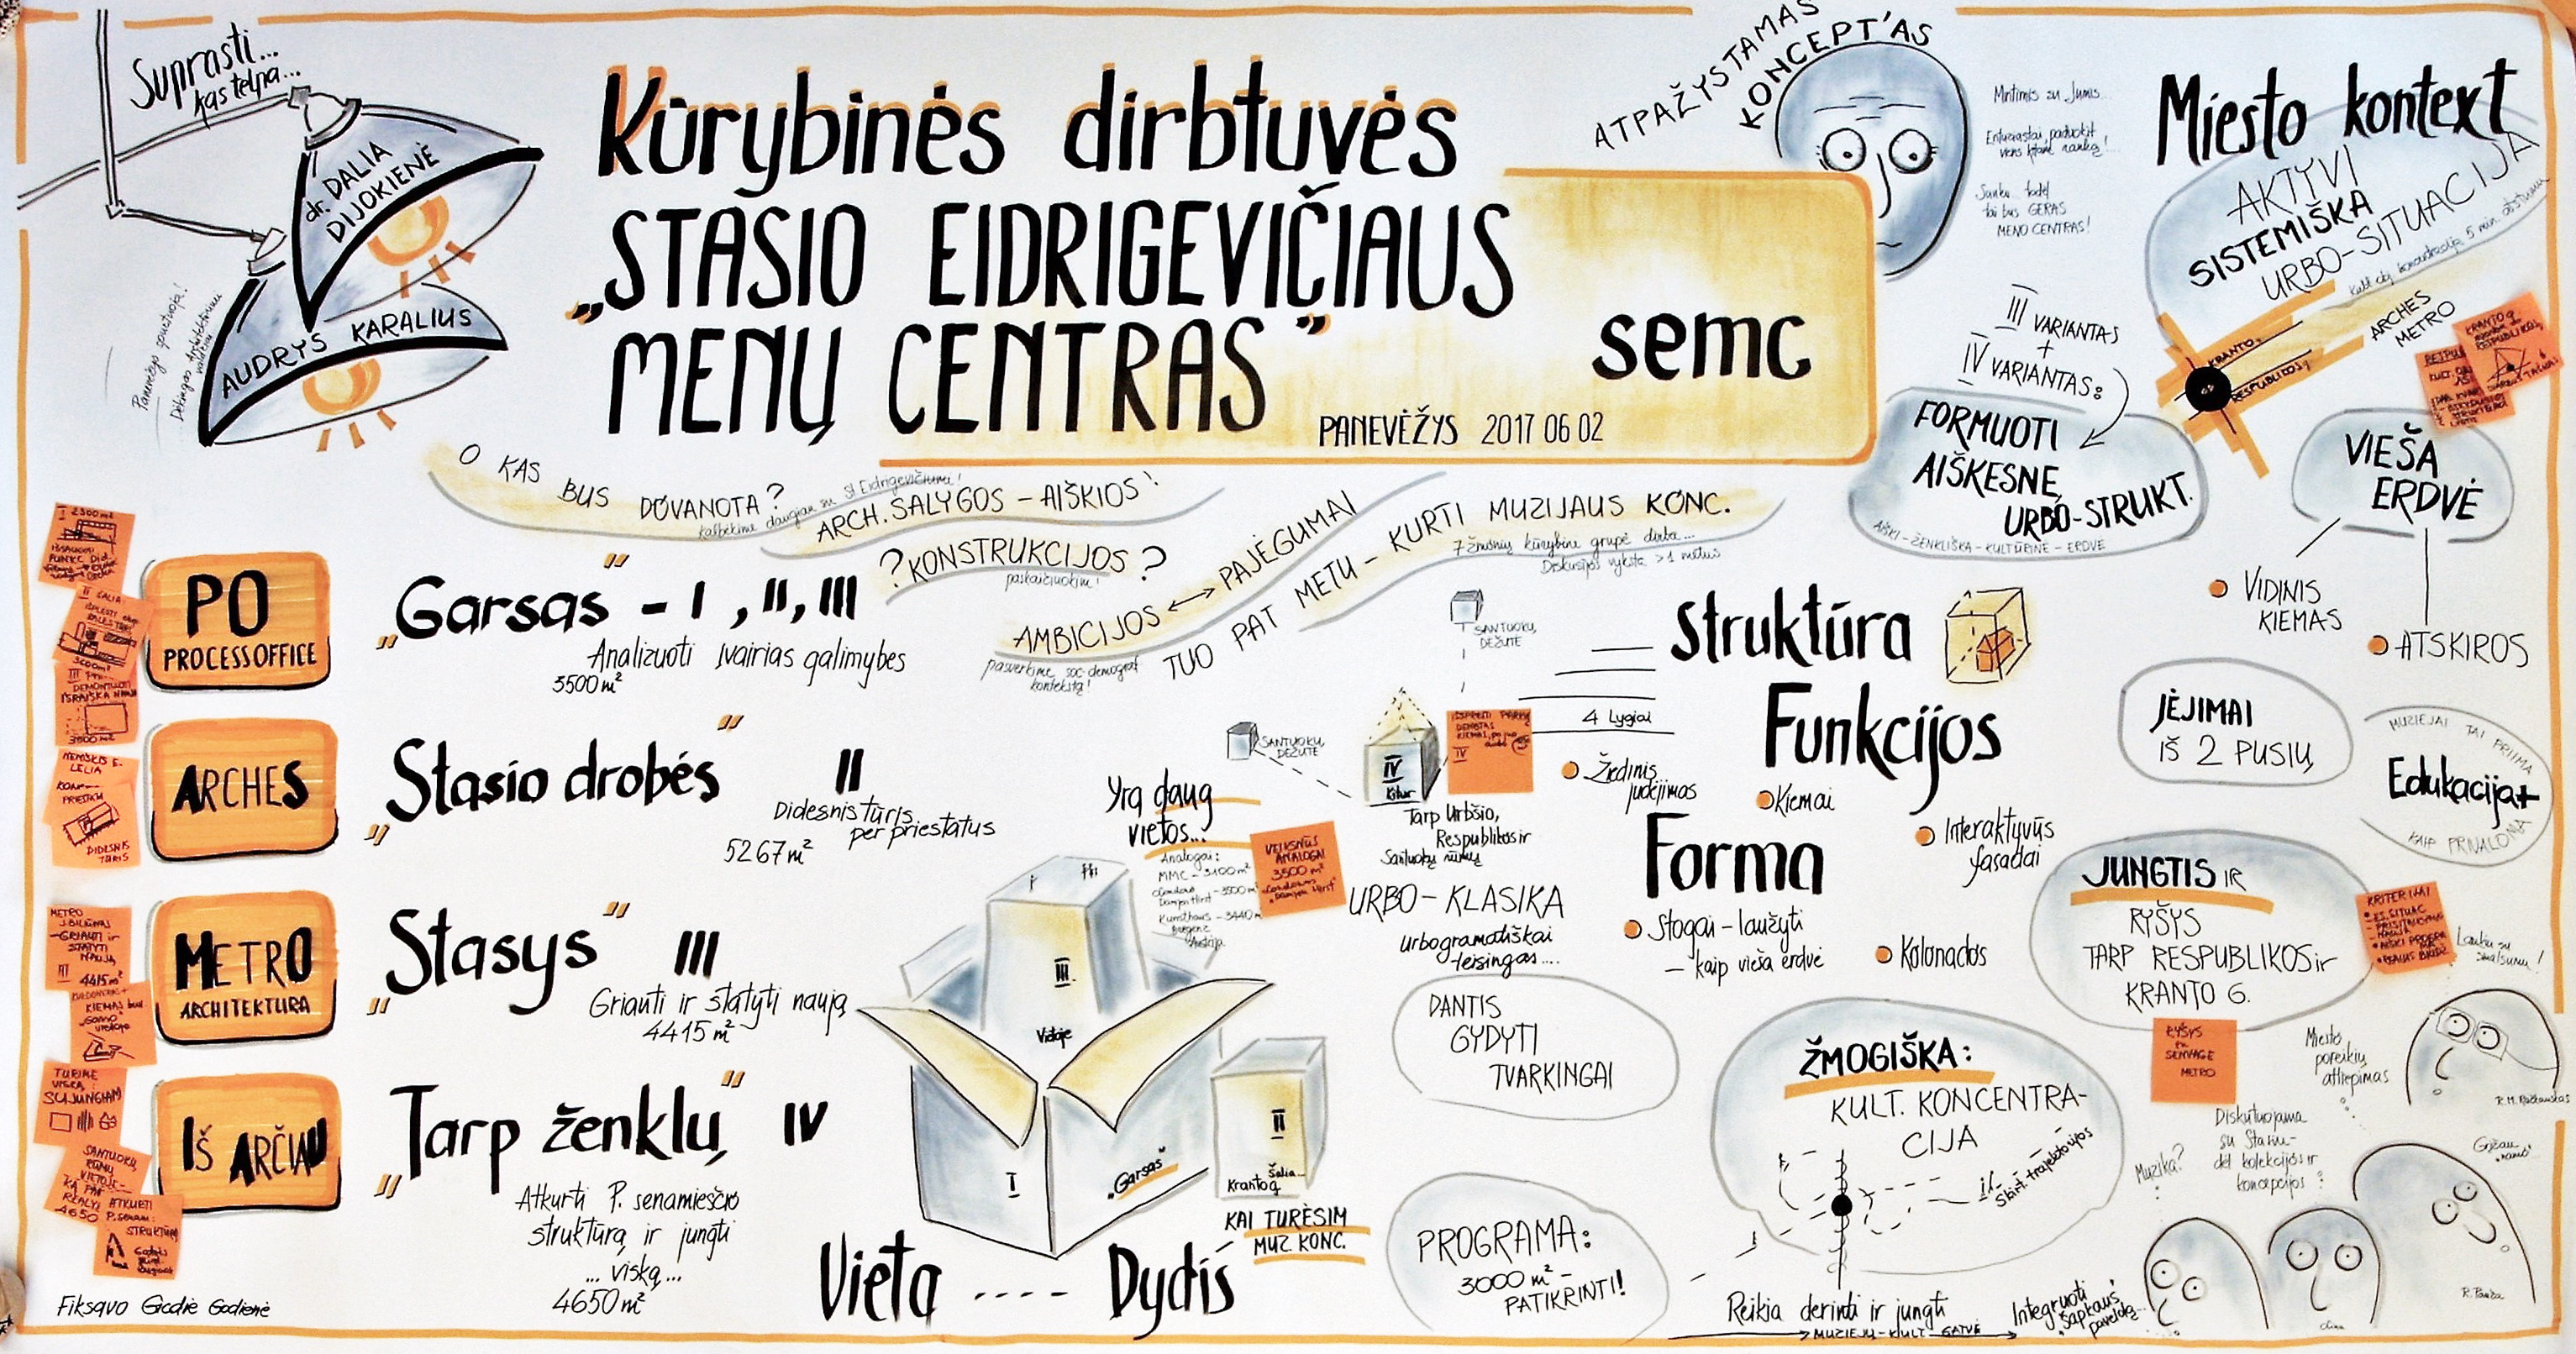 Suprasti...
kas telpa...
dr. DALIA
DIJOKIENĖ
AUDRYS KARALIUS
Kūrybinės dirbtuvės
„STASIO EIDRIGEVIČIAUS
MENŲ CENTRAS"
semc
PANEVĖŽYS 2017 06 02
ATPAŽYSTAMAS
KONCEPT'AS
Mintimis su Jumis...
Entuziastai, paduokit
viens kitam ranką!...
tai bus GERAS
MENO CENTRAS!
Miesto kontext
AKTYVI
SISTEMIŠKA
URBO-SITUACIJA
ARCHES
METRO
KRANTO
RESPUBLIKOS g.
III VARIANTAS
+
IV VARIANTAS:
FORMUOTI
AIŠKESNĘ
URBO-STRUKT.
AIŠKI-ŽENKLIŠKA-KULTŪRINĖ-ERDVĖ
VIEŠA
ERDVĖ
VIDINIS
KIEMAS
ATSKIROS
O KAS BUS DOVANOTA?
kalbėkime daugiau su St Eidrigevičiumi!
ARCH. SĄLYGOS - AIŠKIOS!
?KONSTRUKCIJOS?
paskaičiuokim!
AMBICIJOS ↔ PAJĖGUMAI
pasverkime soc-demograf
kontekstą!
TUO PAT METU - KURTI MUZIJAUS KONC.
7 žmonių kūrybinė grupė dirba...
Diskusijos vyksta >1 metus
PO
PROCESSOFFICE
„Garsas" - I, II, III
Analizuoti įvairias galimybes
3500 m²
ARCHES
„Stasio drobės" II
Didesnis tūris
per priestatus
5267 m²
METRO
ARCHITEKTŪRA
„Stasys" III
Griauti ir statyti naują
4415 m²
IŠ ARČIAU
„Tarp ženklų" IV
Atkurti P. senamiesčio
struktūrą ir jungti
... viską...
4650 m²
Fiksavo Giedrė Godienė
Yra daug
vietos...
Analogai:
MMC - 3100 m²
VEIKSNŪS
ANALOGAI
3500 m²
SANTUOKŲ
DĖŽUTĖ
SANTUOKŲ
DĖŽUTĖ
IV
Kitur
Tarp Urbšio,
Respublikos ir
Santuokų rūmų
URBO-KLASIKA
urbogramatiškai
teisingas....
III
Vietoje
I
„Garsas"
II
Šalia...
Kranto g.
KAI TURĖSIM
MUZ. KONC.
Vieta .... Dydis
struktūra
4 Lygiai
Funkcijos
Žiedinis
judėjimas
Kiemai
Interaktyvūs
fasadai
Forma
Stogai - laužyti
- kaip vieša erdvė
Kolonados
DANTIS
GYDYTI
TVARKINGAI
PROGRAMA:
3000 m² -
PATIKRINTI!
ĮĖJIMAI
IŠ 2 PUSIŲ
MUZIEJAI TAI PRIIMA
Edukacija+
KAIP PRIVALOMĄ
JUNGTIS IR
RYŠYS
TARP RESPUBLIKOS ir
KRANTO G.
RYŠYS
METRO
ŽMOGIŠKA:
KULT. KONCENTRA-
CIJA
Skirt. trajektorijos
Reikia derinti ir jungti
MUZIEJŲ-KULT GATVĖ
Integruoti
„šapkaus"
paveldą...
Miesto
poreikių
atliepimas
Diskutuojama
su Stasiu-
dėl kolekcijos ir
koncepcijos
Muzika?
Laukiu su
smalsumu!